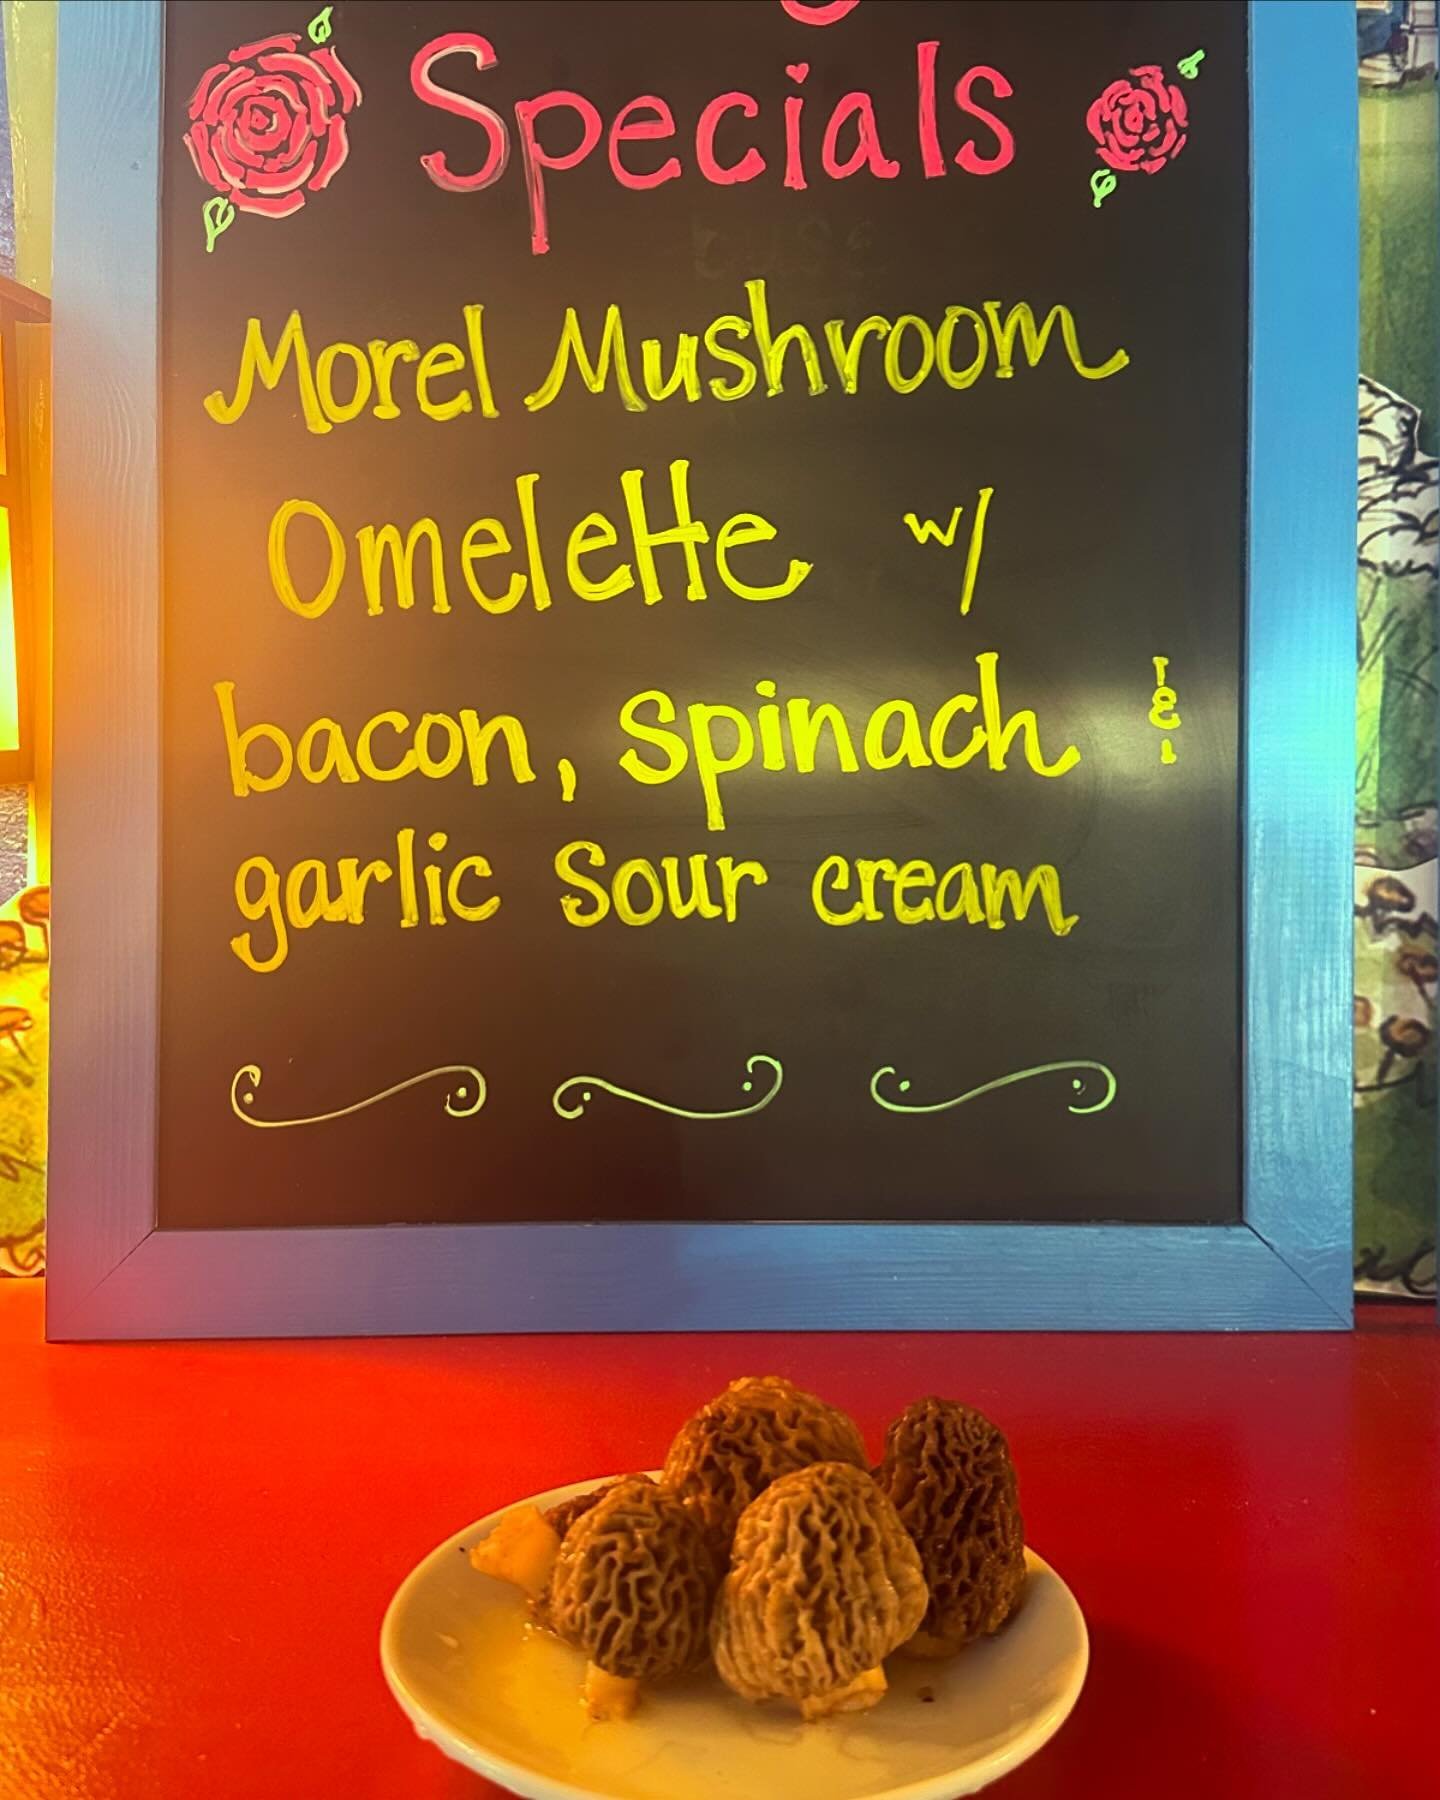 Specials
Morel Mushroom
Omelette w/
bacon, spinach &
garlic sour cream